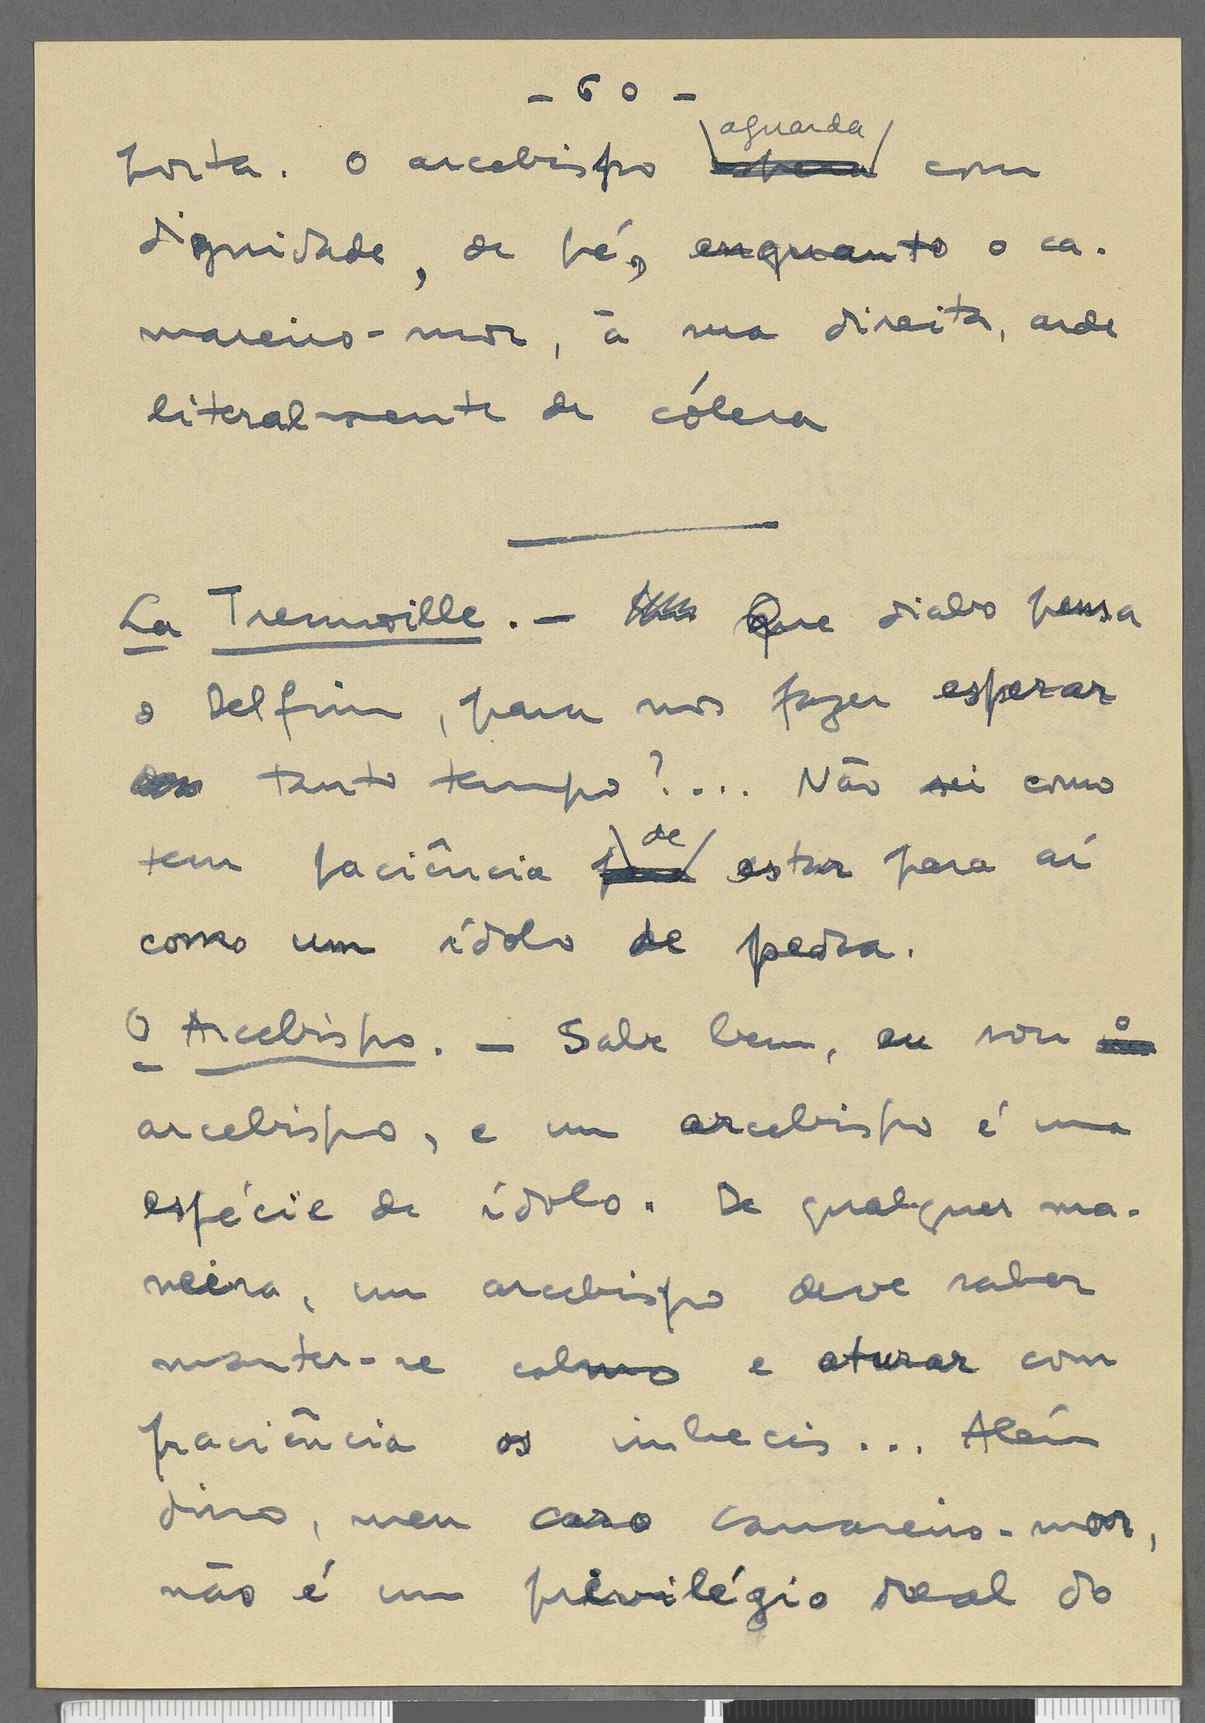 - 60 -
aguarda
porta. O arcebispo espera com
dignidade, de pé, enquanto o ca-
mareiro-mor, à sua direita, arde
literalmente de cólera
La Tremoille. - Que diabo pensa
o Delfim, para nos fazer esperar
tanto tempo?... Não sei como
de
tem paciência para estar para aí
como um ídolo de pedra.
O Arcebispo. - Sabe bem, eu sou o
arcebispo, e um arcebispo é uma
espécie de ídolo. De qualquer ma-
neira, um arcebispo deve saber
manter-se calmo e aturar com
paciência os imbecis... Além
disso, meu caro camareiro-mor,
não é um privilégio real do